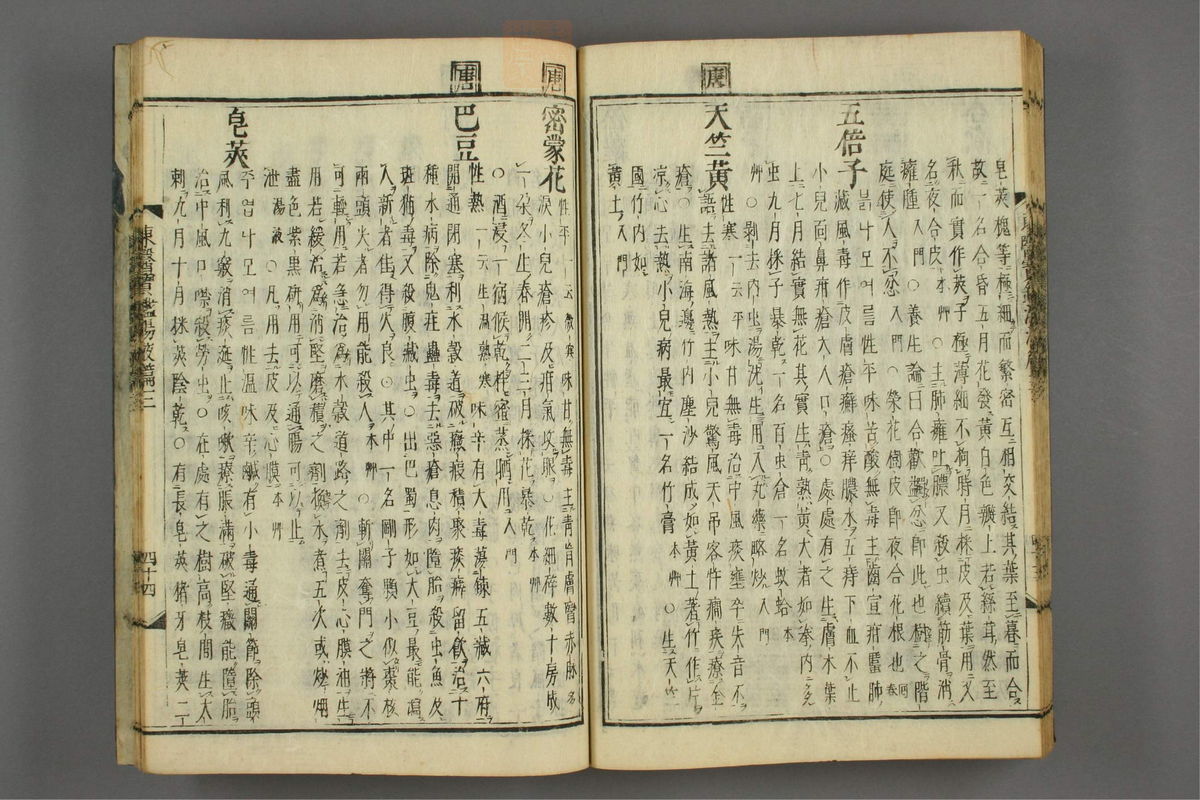 皂莢槐等極細而繁密互相交結其葉至暮而合
故一名合昏五月花發黃白色瓣上若絲茸然至
秋而實作莢子極薄細不拘時月採皮及葉用又
名夜合皮本艸○主肺癰吐膿又殺虫續筋骨消
癰腫入門○養生論曰合歡蠲忿即此也樹之階
庭使人不忿入門○榮花樹皮即夜合花根也回春
五倍子
붉나모여름性平味苦酸無毒主齒宣疳䘌肺
藏風毒作皮膚瘡癬瘙痒膿水五痔下血不止
小兒面鼻疳瘡大人口瘡○處處有之生膚木葉
上七月結實無花其實生青熟黃大者如拳內多
虫九月採子暴乾一名百虫倉一名蚊蛤本
艸○剝去內虫湯洗生用入丸藥略炒入門
唐
天竺黃
性寒一云平味甘無毒治中風痰壅卒失音不
語去諸風熱主小兒驚風天吊客忤癎疾療金
瘡○生南海邊竹內塵沙結成如黃土著竹作片
凉心去熱小兒病最宜一名竹膏本艸○生天竺
國竹內如
黃土入門
唐
密蒙花
性平一云微寒味甘無毒主青盲膚瞖赤脉多
淚小兒瘡疹及疳氣攻眼○花細碎數十房成
一朶冬生春開二三月採花暴乾本艸
○酒浸一宿候乾拌蜜蒸晒用入門
唐
巴豆
性熱一云生溫熟寒味辛有大毒蕩鍊五藏六府
開通閉塞利水穀道破癥瘕積聚痰癖留飮治十
種水病除鬼疰蠱毒去惡瘡息肉墮胎殺虫魚及
斑猫毒又殺腹藏虫○出巴蜀形如大豆最能瀉
人新者佳得火良○其中一名剛子顆小似棗核
兩頭尖者勿用能殺人本艸○斬關奪門之將不
可輕用若急治爲水穀道路之劑去皮心膜油生
用若緩治爲消堅磨積之劑換水煮五次或炒烟
盡色紫黑硏用可以通腸可以止
泄湯液○凡用去皮及心膜本艸
皂莢
주엽나모여름性溫味辛鹹有小毒通關節除頭
風利九竅消痰涎止咳嗽療脹滿破堅癥能墮胎
治中風口噤殺勞虫○在處有之樹高枝間生大
刺九月十月採莢陰乾○有長皂莢猪牙皂莢二
東醫寶鑑湯液篇三
四十四